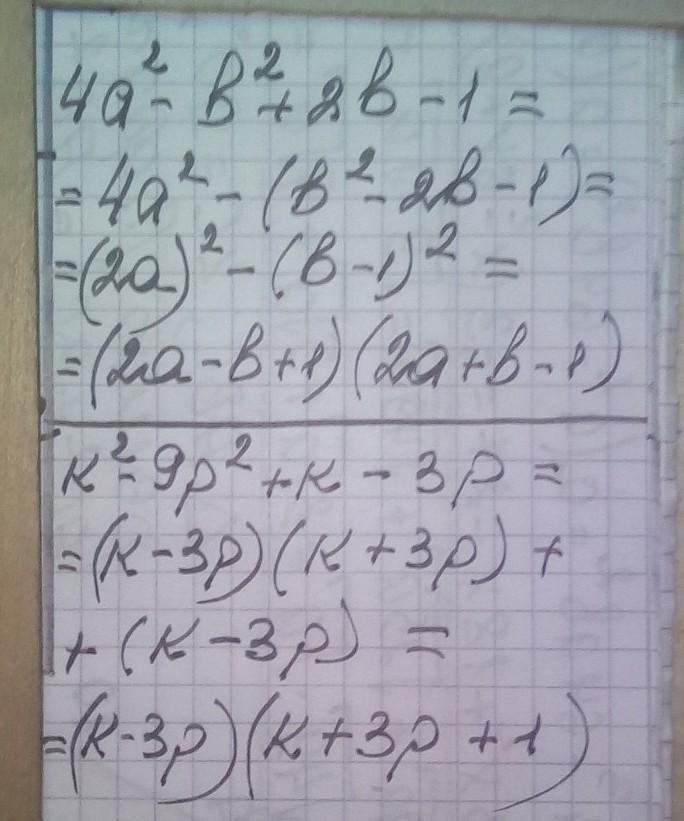 4a² - b² + 2b - 1 =
= 4a² - (b² - 2b - 1) =
= (2a)² - (b - 1)² =
= (2a - b + 1)(2a + b - 1)
к² - 9p² + к - 3p =
= (к - 3p)(к + 3p) +
+ (к - 3p) =
= (к - 3p)(к + 3p + 1)